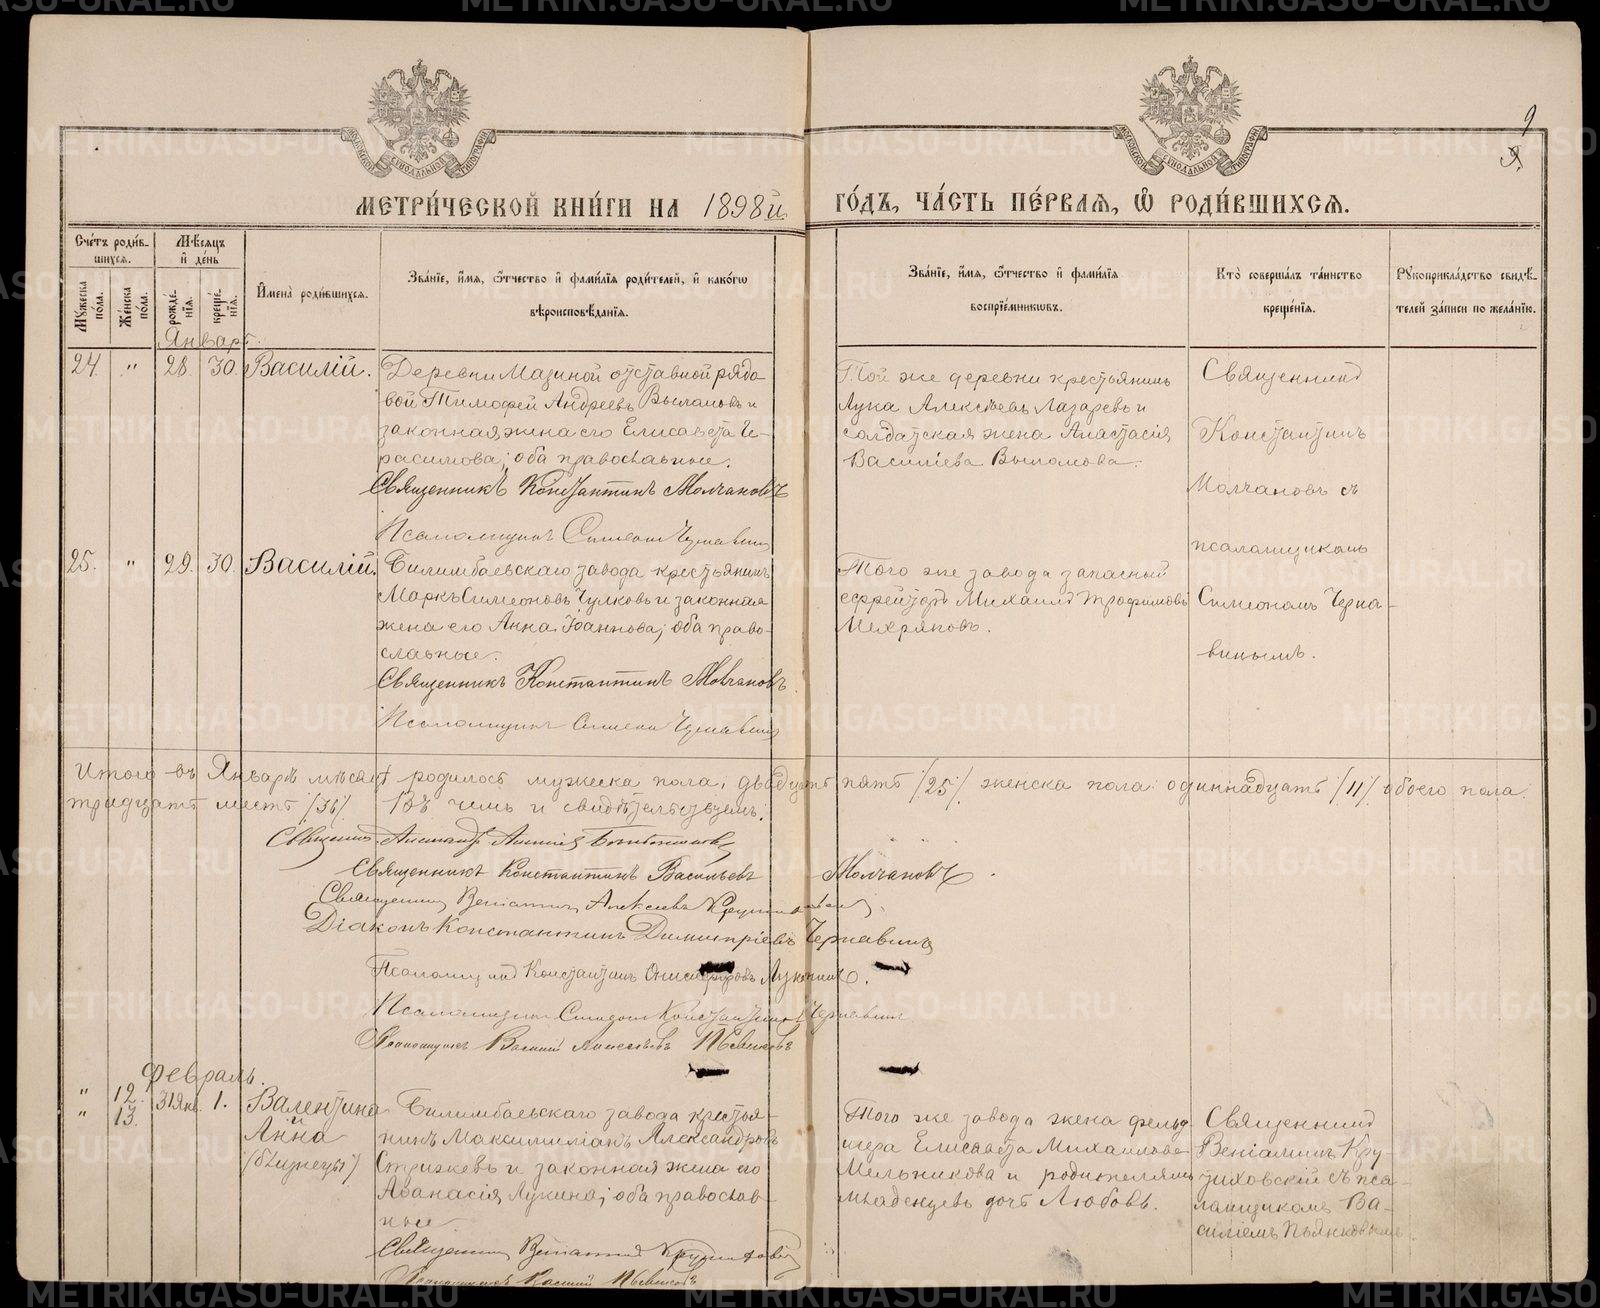 9
9.
МЕТРИ́ЧЕСКОЙ КНИ́ГИ НА 1898й ГО́ДЪ, ЧА́СТЬ ПЕ́РВАѦ, Ѽ РОДИ́ВШИХСѦ.
Сче́тъ роди́вшихсѧ.
Мѣ́сѧцъ и҆ де́нь
Мꙋ́жеска по́ла.
Же́нска по́ла.
рожде́нїѧ.
креще́нїѧ.
И҆мена̀ роди́вшихсѧ.
Зва́нїе, и҆́мѧ, ѻ҆́тчество и҆ фами́лїѧ роди́телей, и҆ како́гѡ
вѣроисповѣ́данїѧ.
Зва́нїе, и҆́мѧ, ѻ҆́тчество и҆ фами́лїѧ
воспрїе́мникѡвъ.
Кто̀ соверша́лъ та́инство
креще́нїѧ.
Рꙋкоприкла́дство свидѣ́-
телей за́писи по жела́нїю.
Январь.
24. " 28. 30. Василій.
Деревни Мазиной отставной рядо
вой Тимофей Андреевъ и
законная жена его Елисавета Ге-
расимова; оба православные.
Священникъ Константинъ Молчановъ
Псаломщикъ Симеонъ Чернавинъ
Той же деревни крестьянинъ
Лука Алексѣевъ Лазаревъ и
солдатская жена Анастасія
Василіева
Священникъ
Константинъ
Молчановъ съ
псаломщикомъ
Симеономъ Черна-
винымъ.
25. " 29. 30. Василій.
Билимбаевскаго завода крестьянинъ
Маркъ Симеоновъ Чулковъ и законная
жена его Анна Іоаннова; оба право-
славные.
Священникъ Константинъ Молчановъ.
Псаломщикъ Симеонъ Чернавинъ
Того же завода запасный
ефрейторъ Михаилъ Трофимовъ
Мехряковъ.
Итого въ Январѣ мѣсяцѣ родилось мужеска пола: двадцать пять /25/, женска пола: одиннадцать /11/, обоего пола
тридцать шесть /36/. Въ чемъ и свидѣтельствуемъ:
Священникъ
Священникъ Константинъ Васильевъ Молчановъ.
Священникъ Веніаминъ Алексѣевъ
Діаконъ Константинъ Димитріевъ Чернавинъ
Псаломщикъ Константинъ
Псаломщикъ Симеонъ Чернавинъ
Псаломщикъ Василій Алексѣевъ Пьянковъ
Февраль.
" 12. 31 Янв. 1. Валентина
" 13. Анна
/близнецы/
Билимбаевскаго завода крестья-
нинъ Максимиліанъ Александровъ
Стрижевъ и законная жена его
Афанасія Лукина; оба православ-
ные.
Священникъ Веніаминъ
Псаломщикъ Василій Пьянковъ
Того же завода жена фельд
шера Елисавета Михаилова
Мельникова и родителямъ
младенцевъ дочь Любовь.
Священникъ
Веніаминъ Кру-
тиховскій съ пса-
ломщикомъ Ва-
силіемъ Пьянковымъ.
METRIKI.GASO-URAL.RU